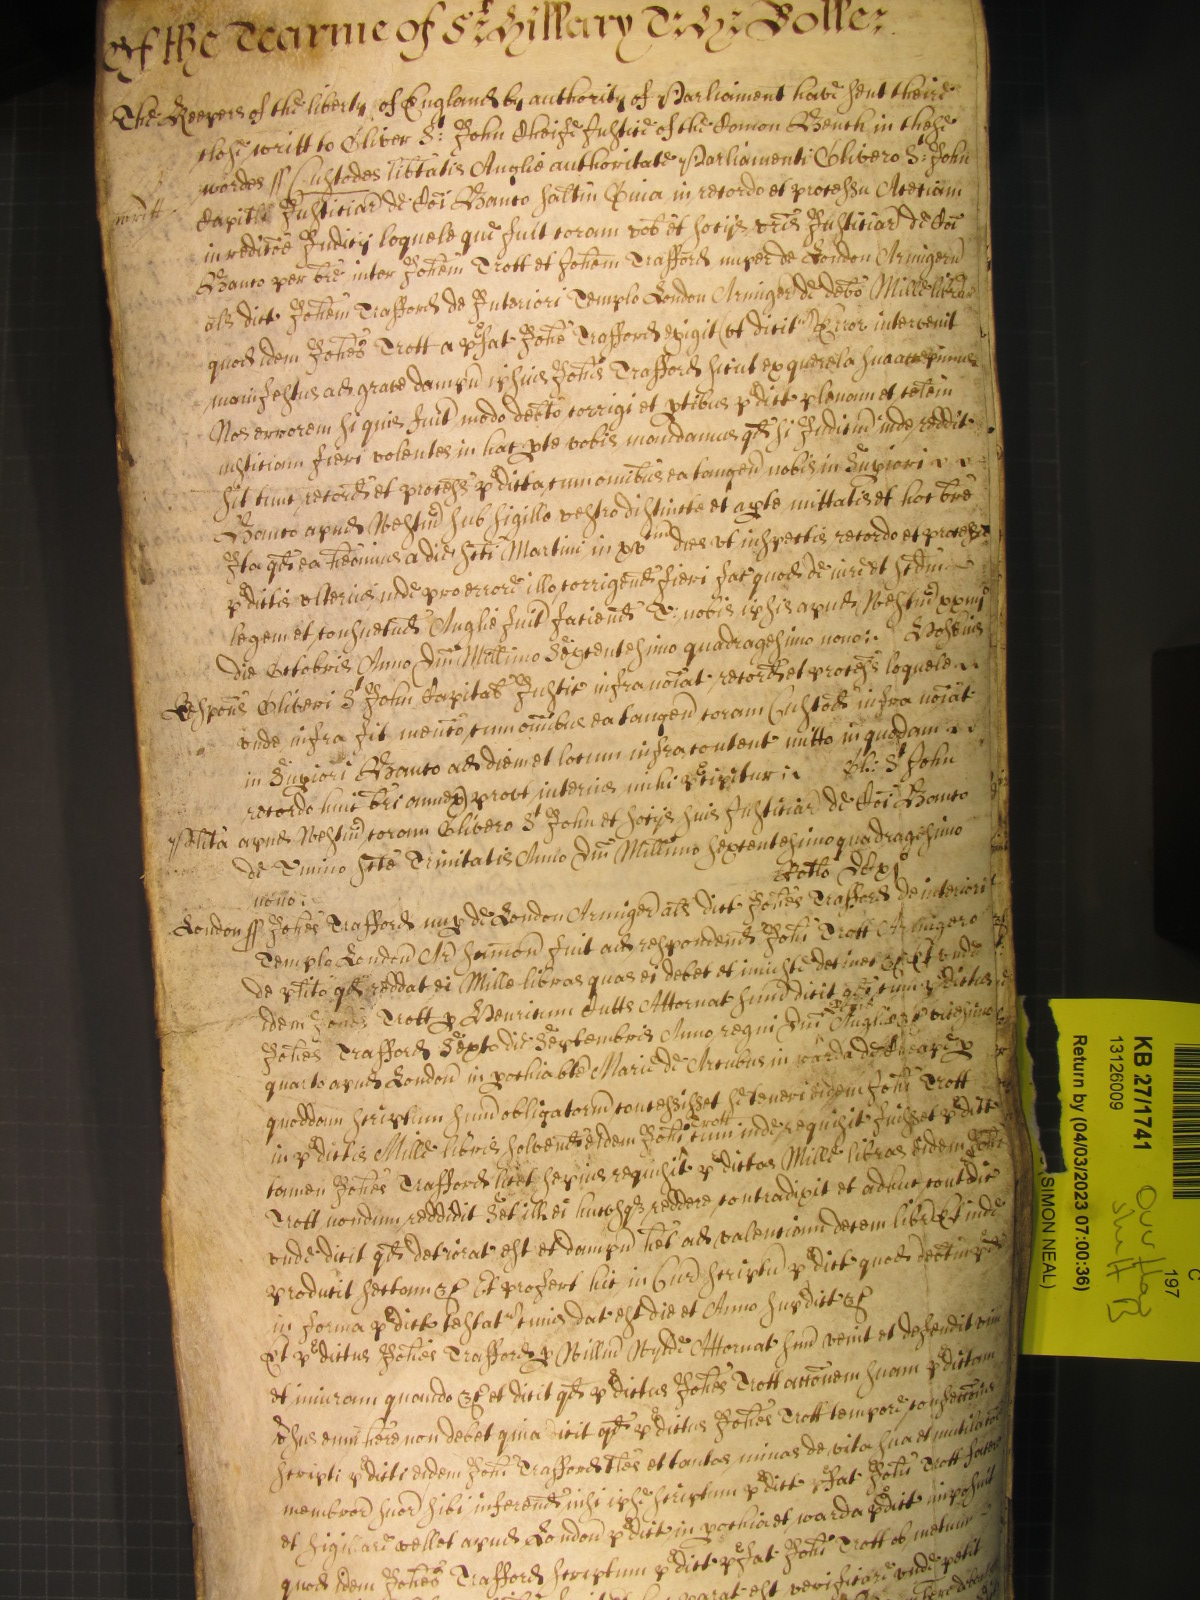 Of the Tearme of St Hillary
The Keepers of the liberty of England by authority of Parliament have sent theire
close writt to Oliver St John Cheife Justice of the Comon Bench in these
wordes ss Custodes lib'tatis Anglie authoritate Parliamenti Olivero St John
writt
Capitli Justiciar de Coi Banco salt'm Quia in recordo et processu Ac etiam
in reditoe Judicij loquele que fuit coram vob et socijs vris Justiciar de Coi
Banco per bre inter Johem Trott et Johem Trafford nuper de London Armigeru
als dict Johem Trafford de Interiori Templo London Armiger de debo Mille libr
quod idem Johes Trott a p'fat Johe Trafford exigit ut dicit Error intervenit
manifestus ad grave dampn ipsius Johis Trafford sicut ex querela sua accepimus
Nos errorem si quis fuit modo debito corrigi et p'tibus p'dict plenam et celem
justiciam fieri volentes in hac pte vobis mandamus qd si Judiciu inde reddit
sit tunc record et process p'dicta cum omibus ea tangen nobis in Superiori
Banco apud Westm sub sigillo vestro distincte et apte mittatis et hoc bre
Ita qd ea heamus a die sci Martini in xv dies ut inspectis recordo et processu
p'dictis ulterius inde pro errore illo corrigend fieri fac quod de iure et scdm
legem et consuetud Anglie fuit faciend T: nobis ipsis apud Westm xxiiij
die Octobris Anno Dni Millimo Sexcentesimo quadragesimo nono:
Respons Oliveri St John Capital Justic infranoiat record et process loquele
unde infra fit mencio cum omibus ea tangen coram Custod infra noiat
in Superiori Banco ad diem et locum infracontent mitto in quodam
recordo huic bri annex prout interius mihi p'cipitur: Ol: St John
Plita apud Westm coram Olivero St John et socijs suis Justiciar de Coi Banco
de Tmino sce Trinitatis Anno Dni Millimo sexcentesimo quadragesimo
nono: Rotlo
London ss Johes Trafford nup de London Armiger als dict Johes Trafford de interiori
Templo London Ar sumon fuit ad respondend Johi Trott Armigero
de plito qd reddat ei Mille libras quas ei debet et iniuste detinet &c Et unde
idem Johes Trott p Henricum Cutts Attornat suu dicit qd cum p'dictus
Johes Trafford Sexto die Septembris Anno regni Dni Anglie &c vicesimo
quarto apud London in pochia bte Marie de Arcubus in warda de Cheape p
quoddam scriptum suu obligatoru concessisset se teneri eidem Johi Trott
in p'dictis Mille libris solvend eidem Johi Trott cum inde requisit fuisset p'dict
tamen Johes Trafford licet sepius requisit p'dictas Mille libras eidem Johi
Trott nondum reddidit Set ill ei hucusq reddere contradixit et adhuc contdic
unde dicit qd deteriorat est et dampn het ad valenciam decem librar Et inde
producit sectam &c Et profert hic in Cur scriptu p'dict quod debitu p'd
in forma p'dict testat cuius dat est die et Anno sup'dict &c
Et p'dictus Johes Trafford p Willm Attornat suu venit et defendit vim
et iniuram quando &c et dicit qd p'dictus Johes Trott accoem suam p'dictam
vsus eum here non debet quia dicit qd p'dictus Johes Trott tempore confeccois
scripti p'dicti eidem Johi Trafford tles et tantas minas de vita sua et mutilacoe
membror suor sibi inferend nisi ipe scriptum p'dict p'fat Johi Trott faceret
et sigillare vellet apud London p'dict in pochia et warda p'dict imposuit
quod idem Johes Trafford scriptum p'dict p'fat Johi Trott ob metum
parat est verificare unde petit
KB 27/1741
13126009
Return by (04/03/2023 07:00:36)
SIMON NEAL)
197
C